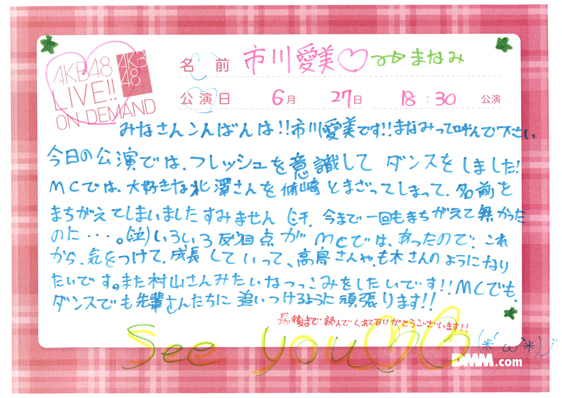 AKB48
LIVE!!
ON DEMAND
AKB
48
名前 市川愛美♡ まなみ
公演日 6月 27日 18:30 公演
みなさんこんばんは!!市川愛美です!!まなみって呼んで下さい
今日の公演では、フレッシュを意識して ダンスをしました!
MCでは、大好きな北澤さんを 篠崎とまざってしまって、名前を
まちがえてしまいましたすみません 汗、今まで一回もまちがえて無かった
のに・・・。(泣)いろいろ反省点が MCでは、あったので、これ
から、気をつけて、成長 していって、高島さんや、茂木さんのようになり
たいです。また村山さんみたいなつっこみをしたいです!!MCでも、
ダンスでも先輩さんたちに 追いつけるように 頑張ります!!
最後まで 読んでくれてありがとうございます!!
See you♡♡
DMM.com